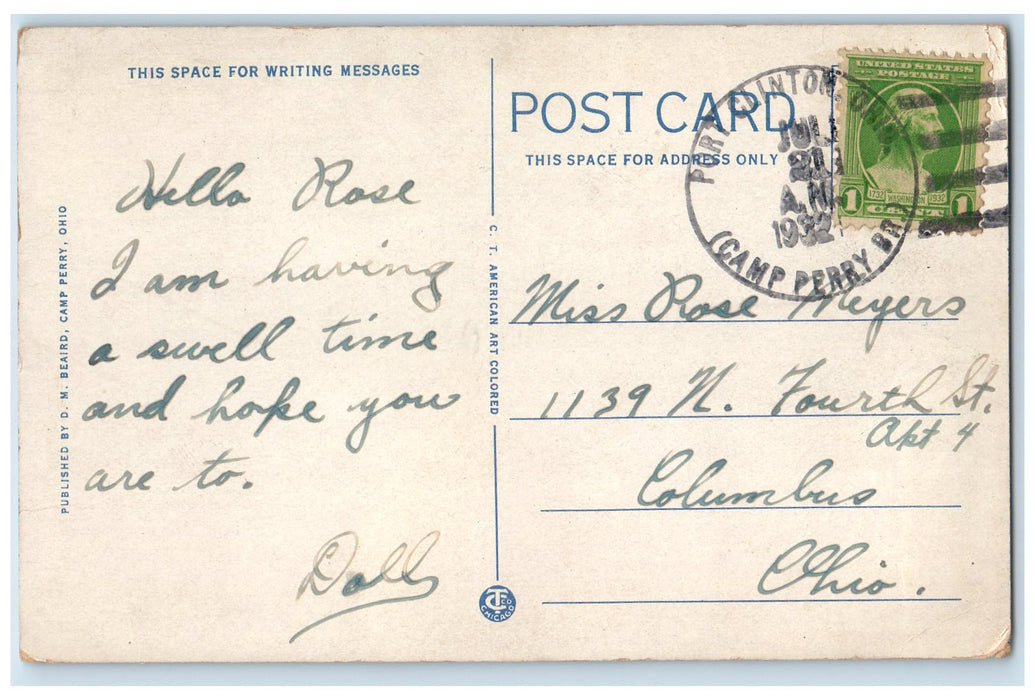 THIS SPACE FOR WRITING MESSAGES
Hello Rose
I am having
a swell time
and hope you
are to.
Doll
PUBLISHED BY D. M. BEAIRD, CAMP PERRY, OHIO
C. T. AMERICAN ART COLORED
CHICAGO
POST CARD
THIS SPACE FOR ADDRESS ONLY
PORT CLINTON, OHIO
JUL
A.M.
1932
(CAMP PERRY BR.)
UNITED STATES
POSTAGE
1732 WASHINGTON 1932
1 CENT 1
Miss Rose Meyers
1139 N. Fourth St.
Apt 4
Columbus
Ohio.